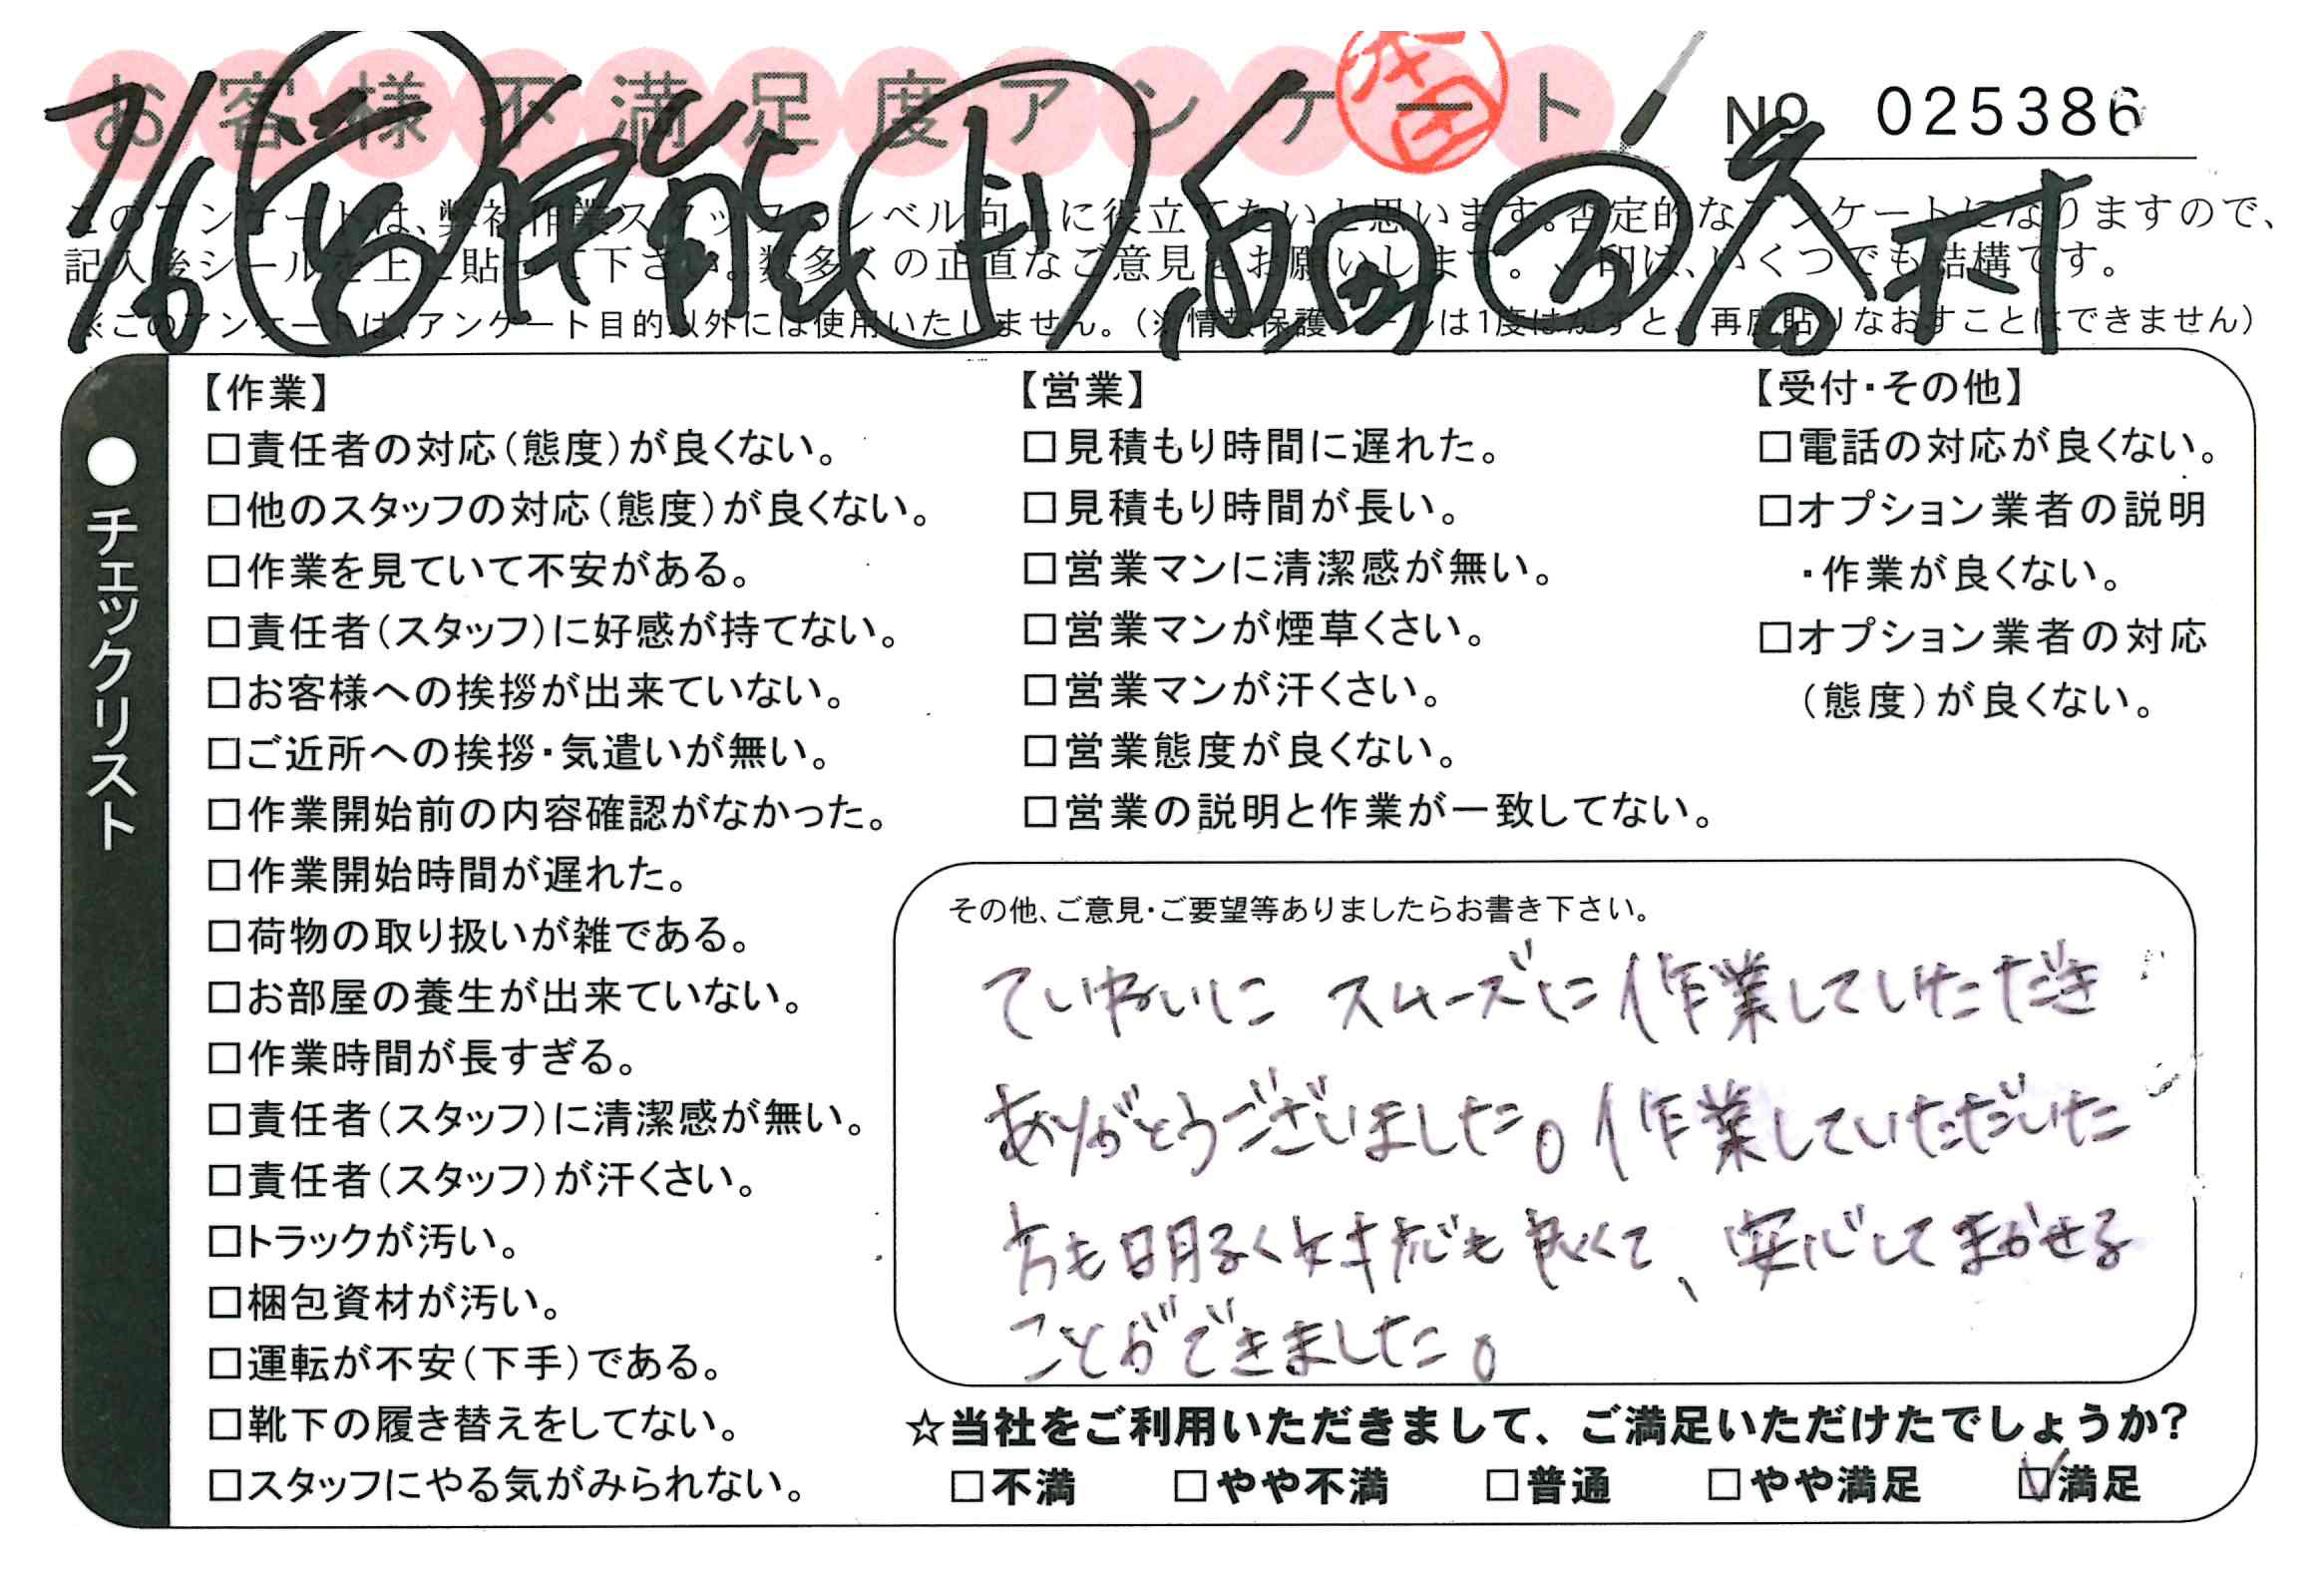 お客様不満足度アンケート
No 025386
7/6
このアンケートは、弊社作業スタッフのレベル向上に役立てたいと思います。否定的なアンケートになりますので、
記入後シールを上に貼って下さい。数多くの正直なご意見をお願いします。 印は、いくつでも結構です。
※このアンケートは、アンケート目的以外には使用いたしません。(※情報保護シールは1度はがすと、再度貼りなおすことはできません)
●チェックリスト
【作業】
□責任者の対応(態度)が良くない。
□他のスタッフの対応(態度)が良くない。
□作業を見ていて不安がある。
□責任者(スタッフ)に好感が持てない。
□お客様への挨拶が出来ていない。
□ご近所への挨拶・気遣いが無い。
□作業開始前の内容確認がなかった。
□作業開始時間が遅れた。
□荷物の取り扱いが雑である。
□お部屋の養生が出来ていない。
□作業時間が長すぎる。
□責任者(スタッフ)に清潔感が無い。
□責任者(スタッフ)が汗くさい。
□トラックが汚い。
□梱包資材が汚い。
□運転が不安(下手)である。
□靴下の履き替えをしてない。
□スタッフにやる気がみられない。
【営業】
□見積もり時間に遅れた。
□見積もり時間が長い。
□営業マンに清潔感が無い。
□営業マンが煙草くさい。
□営業マンが汗くさい。
□営業態度が良くない。
□営業の説明と作業が一致してない。
【受付・その他】
□電話の対応が良くない。
□オプション業者の説明
・作業が良くない。
□オプション業者の対応
(態度)が良くない。
その他、ご意見・ご要望等ありましたらお書き下さい。
ていねいに スムーズに作業していただき
ありがとうございました。作業していただいた
方も明るく好感も良くて、安心してまかせる
ことができました。
☆当社をご利用いただきまして、ご満足いただけたでしょうか?
□不満 □やや不満 □普通 □やや満足 ☑満足